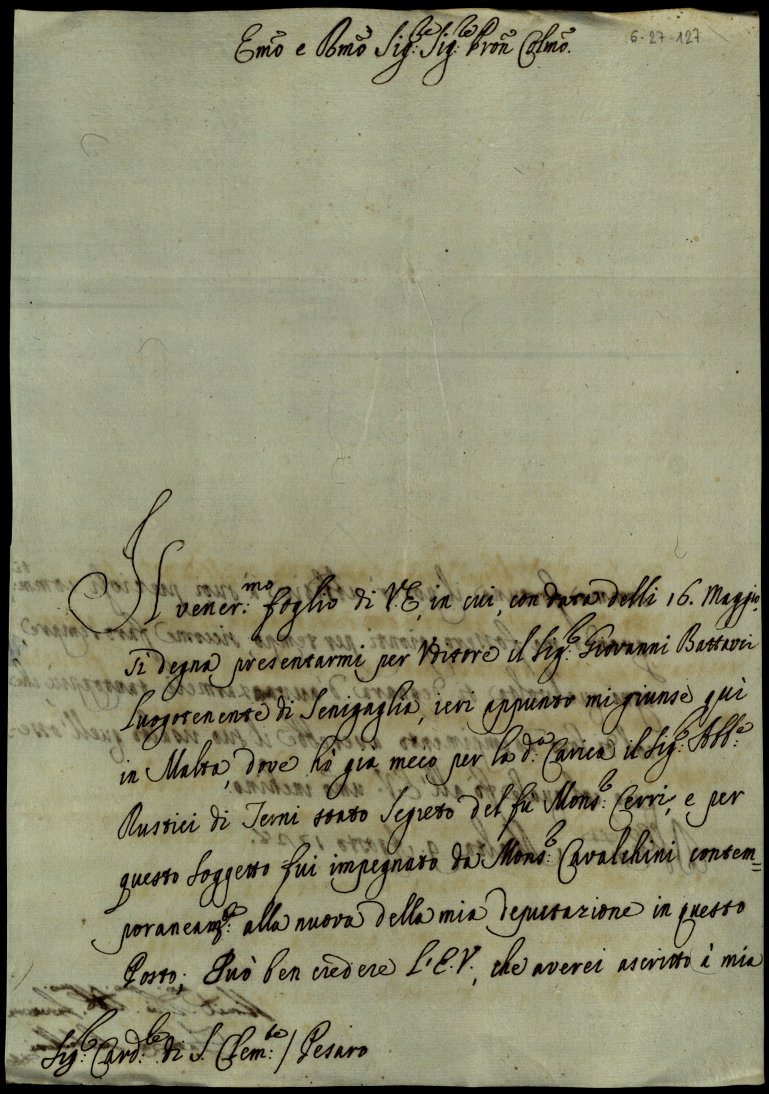 Emõ e Rmõ Sig:re Sig:re Prõn Colmõ.
6-27-127
Il vener:mo foglio di V.E., in cui, con data delli 16. Maggio,
si degna presentarmi per Uditore il Sig:e Giovanni Battavei
Luogotenente di Senigaglia, ieri appunto mi giunse quì
in Malta, dove hò già meco per la d:a Carica il Sig:e Abb:e
Rustici di Terni stato Segreto del fù Mons:e Cerri, e per
questo soggetto fui impegnato da Mons:e Cavalchini contem=
poraneam:e alla nuova della mia deputazione in questo
Posto; Può ben credere l'E.V., che averei ascritto à mia
Sig:e Card:le di S. Clem:te / Pesaro